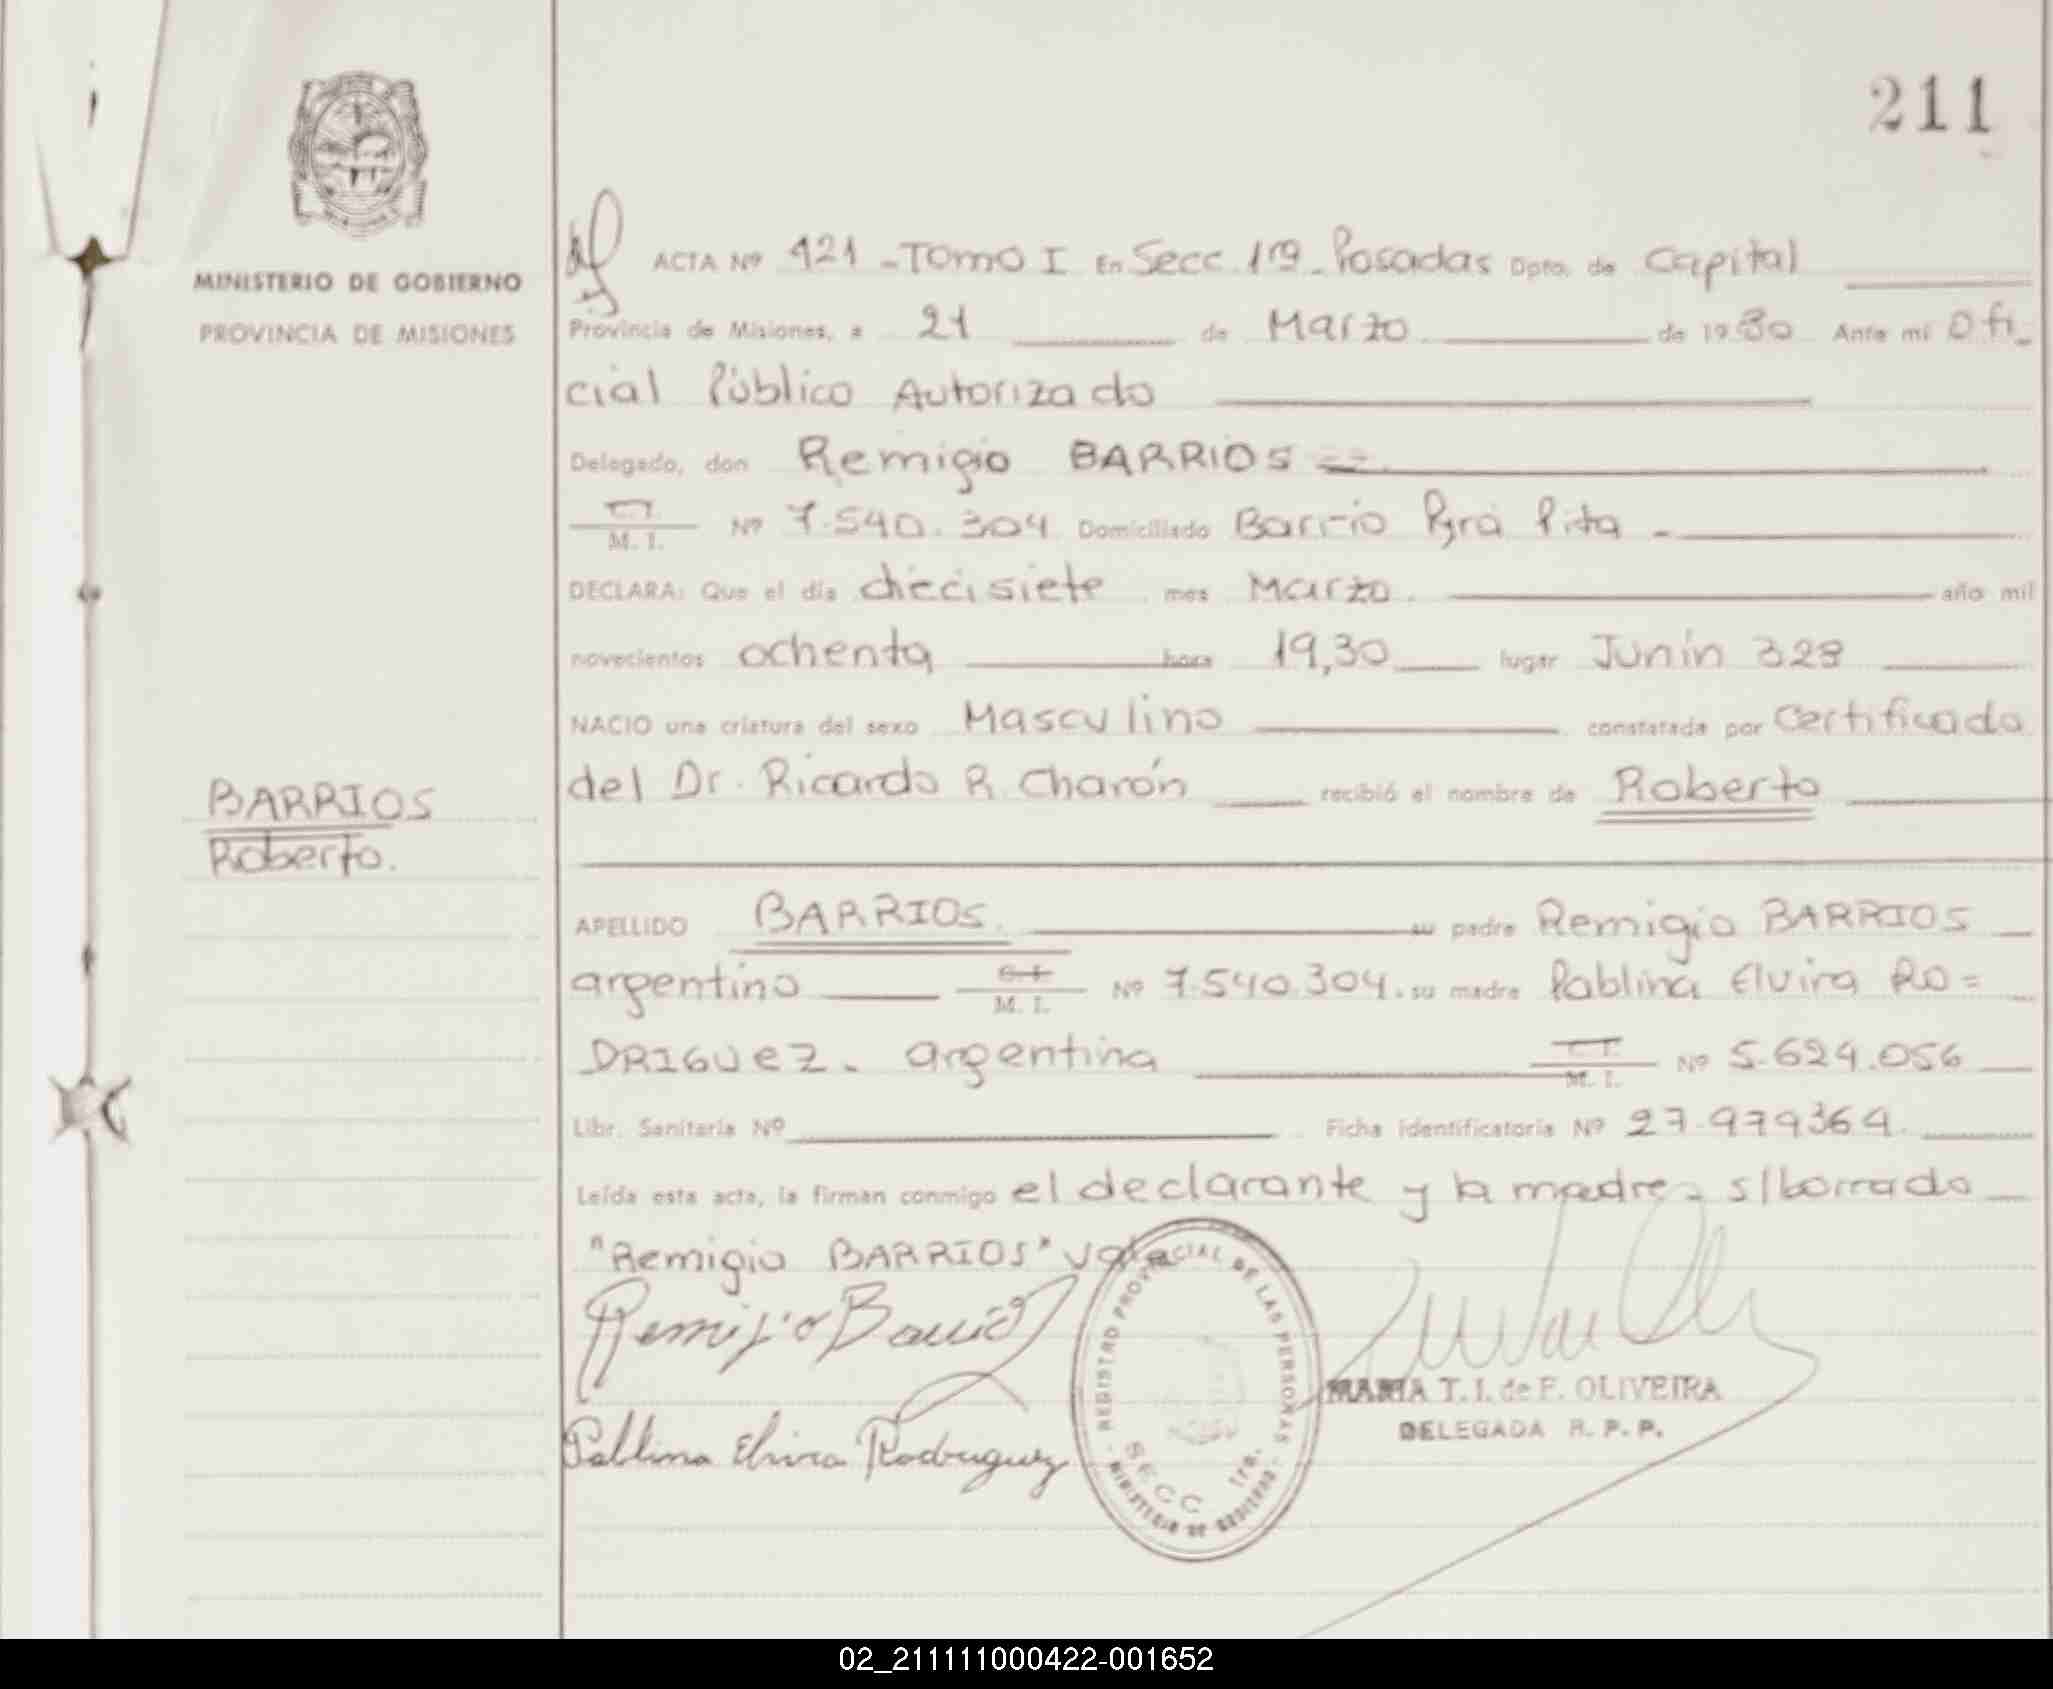 211
MINISTERIO DE GOBIERNO
PROVINCIA DE MISIONES
ACTA Nº 421 - Tomo I En Secc 1ra - Posadas Dpto. de Capital
Provincia de Misiones, a 21 de Marzo de 1980 Ante mi Ofi_
cial Público Autorizado
Delegado, don Remigio BARRIOS
M. I. Nº 7.540.304 Domiciliado Barrio Pyra Pita -
DECLARA: Que el día diecisiete mes Marzo. año mil
novecientos ochenta hora 19,30 lugar Junín 328
NACIO una criatura del sexo Masculino constatada por Certificado
del Dr. Ricardo R. Charón recibió el nombre de Roberto
BARRIOS
Roberto.
APELLIDO BARRIOS. su padre Remigio BARRIOS
argentino C. I. M. I. Nº 7.540.304. su madre Pablina Elvira RO=
DRIGUEZ. argentina M. I. Nº 5.624.056
Libr. Sanitaria Nº Ficha identificatoria Nº 27.979364.
Leída esta acta, la firman conmigo el declarante y la madre - s/borrado
"Remigio BARRIOS" vale
Remigio Barrios
Pablina Elvira Rodriguez
REGISTRO PROVINCIAL DE LAS PERSONAS
SECC 1ra.
- MINISTERIO DE GOBIERNO -
MARIA T. I. de F. OLIVEIRA
DELEGADA R. P. P.
02_211111000422-001652